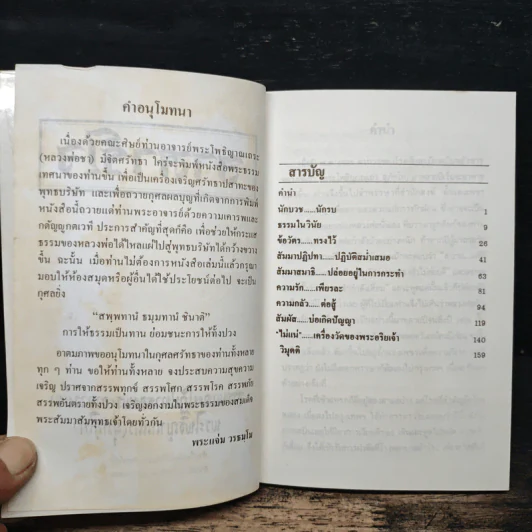 คำอนุโมทนา
เนื่องด้วยคณะศิษย์ท่านอาจารย์พระโพธิญาณเถระ
(หลวงพ่อชา) มีจิตศรัทธา ใคร่จะพิมพ์หนังสือพระธรรม
เทศนาของท่านขึ้น เพื่อเป็นเครื่องเจริญศรัทธาปสาทะของ
พุทธบริษัท และเพื่อถวายกุศลผลบุญที่เกิดจากการพิมพ์
หนังสือนี้ถวายแด่ท่านพระอาจารย์ด้วยความเคารพและ
กตัญญูกตเวที ประการสำคัญที่สุดก็คือ เพื่อช่วยให้กระแส
ธรรมของหลวงพ่อได้ไหลแผ่ไปสู่พุทธบริษัทได้กว้างขวาง
ขึ้น ฉะนั้น เมื่อท่านไม่ต้องการหนังสือเล่มนี้แล้วกรุณา
มอบให้ห้องสมุดหรือผู้อื่นได้ใช้ประโยชน์ต่อไป จะเป็น
กุศลยิ่ง
"สพฺพทานํ ธมฺมทานํ ชินาติ"
การให้ธรรมเป็นทาน ย่อมชนะการให้ทั้งปวง
อาตมภาพขออนุโมทนาในกุศลศรัทธาของท่านทั้งหลาย
ทุก ๆ ท่าน ขอให้ท่านทั้งหลาย จงประสบความสุขความ
เจริญ ปราศจากสรรพทุกข์ สรรพโศก สรรพโรค สรรพภัย
สรรพอันตรายทั้งปวง เจริญงอกงามในพระธรรมของสมเด็จ
พระสัมมาสัมพุทธเจ้าโดยทั่วกัน
พระแจ่ม วรธมฺโม
สารบัญ
คำนำ
นักบวช.....นักรบ 1
ธรรมในวินัย 9
ข้อวัตร.....ทรงไว้ 26
สัมมาปฏิปทา.....ปฏิบัติสม่ำเสมอ 41
สัมมาสมาธิ.....ปล่อยอยู่ในการกระทำ 63
ความรัก.....เพียรละ 81
ความกลัว.....ต่อสู้ 94
สัมผัส.....บ่อเกิดปัญญา 119
"ไม่แน่".....เครื่องวัดของพระอริยเจ้า 140
วิมุตติ 159